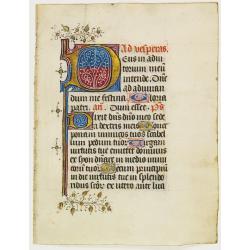 Ad vesperas.
Deus in adiu
toriũm meũ
intende. Dñe
ad adiuuan
dum me festina. Gloria
patri. añ. Dum esset. Ps̃.
Dixit dñs dño meo sede
a dextris meis. Donec
ponam inimicos tuos scabel
lum pedum tuoꝝ. Virgam
uirtutis tue emittet dominus
ex syon dñare in medio inimi
coꝝ tuoꝝ. Tecum principiũ
in die uirtutis tue in splendo
ribus scõꝝ. ex utero ante luci